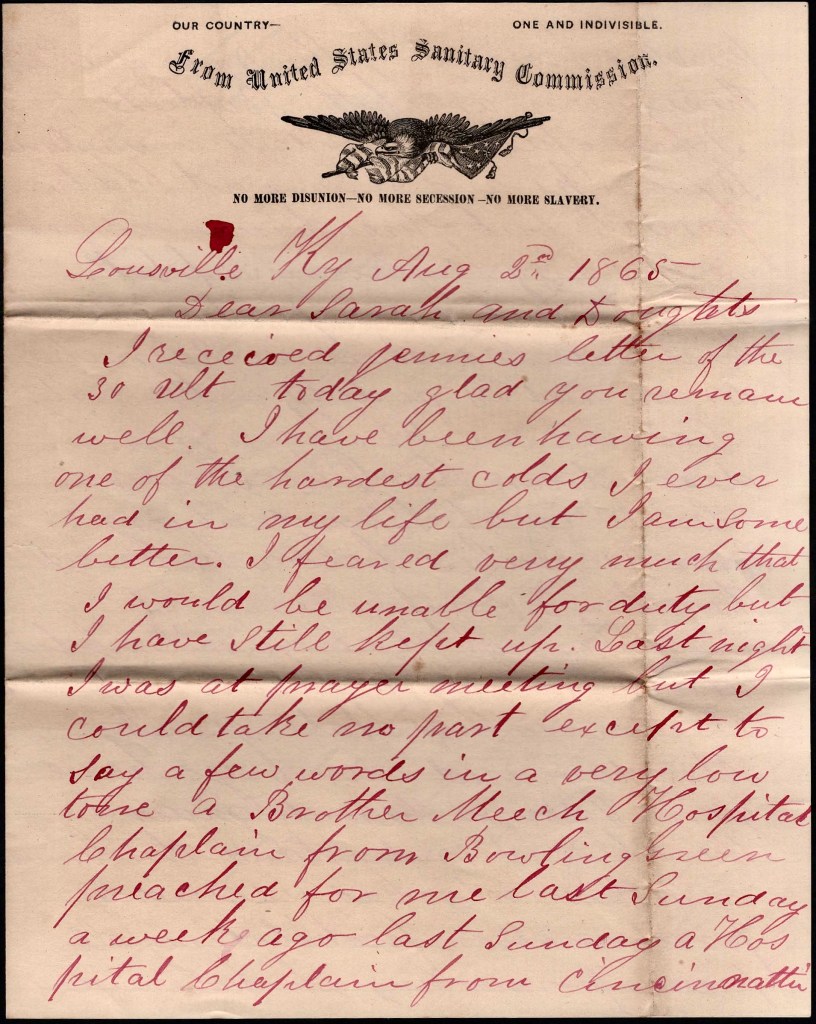 OUR COUNTRY— ONE AND INDIVISIBLE.
From United States Sanitary Commission.
NO MORE DISUNION—NO MORE SECESSION—NO MORE SLAVERY.
Lousville Ky Aug 2nd 1865
Dear Sarah and
I received jennies letter of the
30 ult today glad you remain
well. I have been having
one of the hardest colds I ever
had in my life but I am some
better. I feared very much that
I would be unable for duty but
I have still kept up. Last night
I was at prayer meeting but I
could take no part except to
say a few words in a very low
tone a Brother Meech Hospital
Chaplain from Bowlingreen
preached for me last Sunday
a week ago last Sunday a Hos
pital Chaplain from Cincinnatti